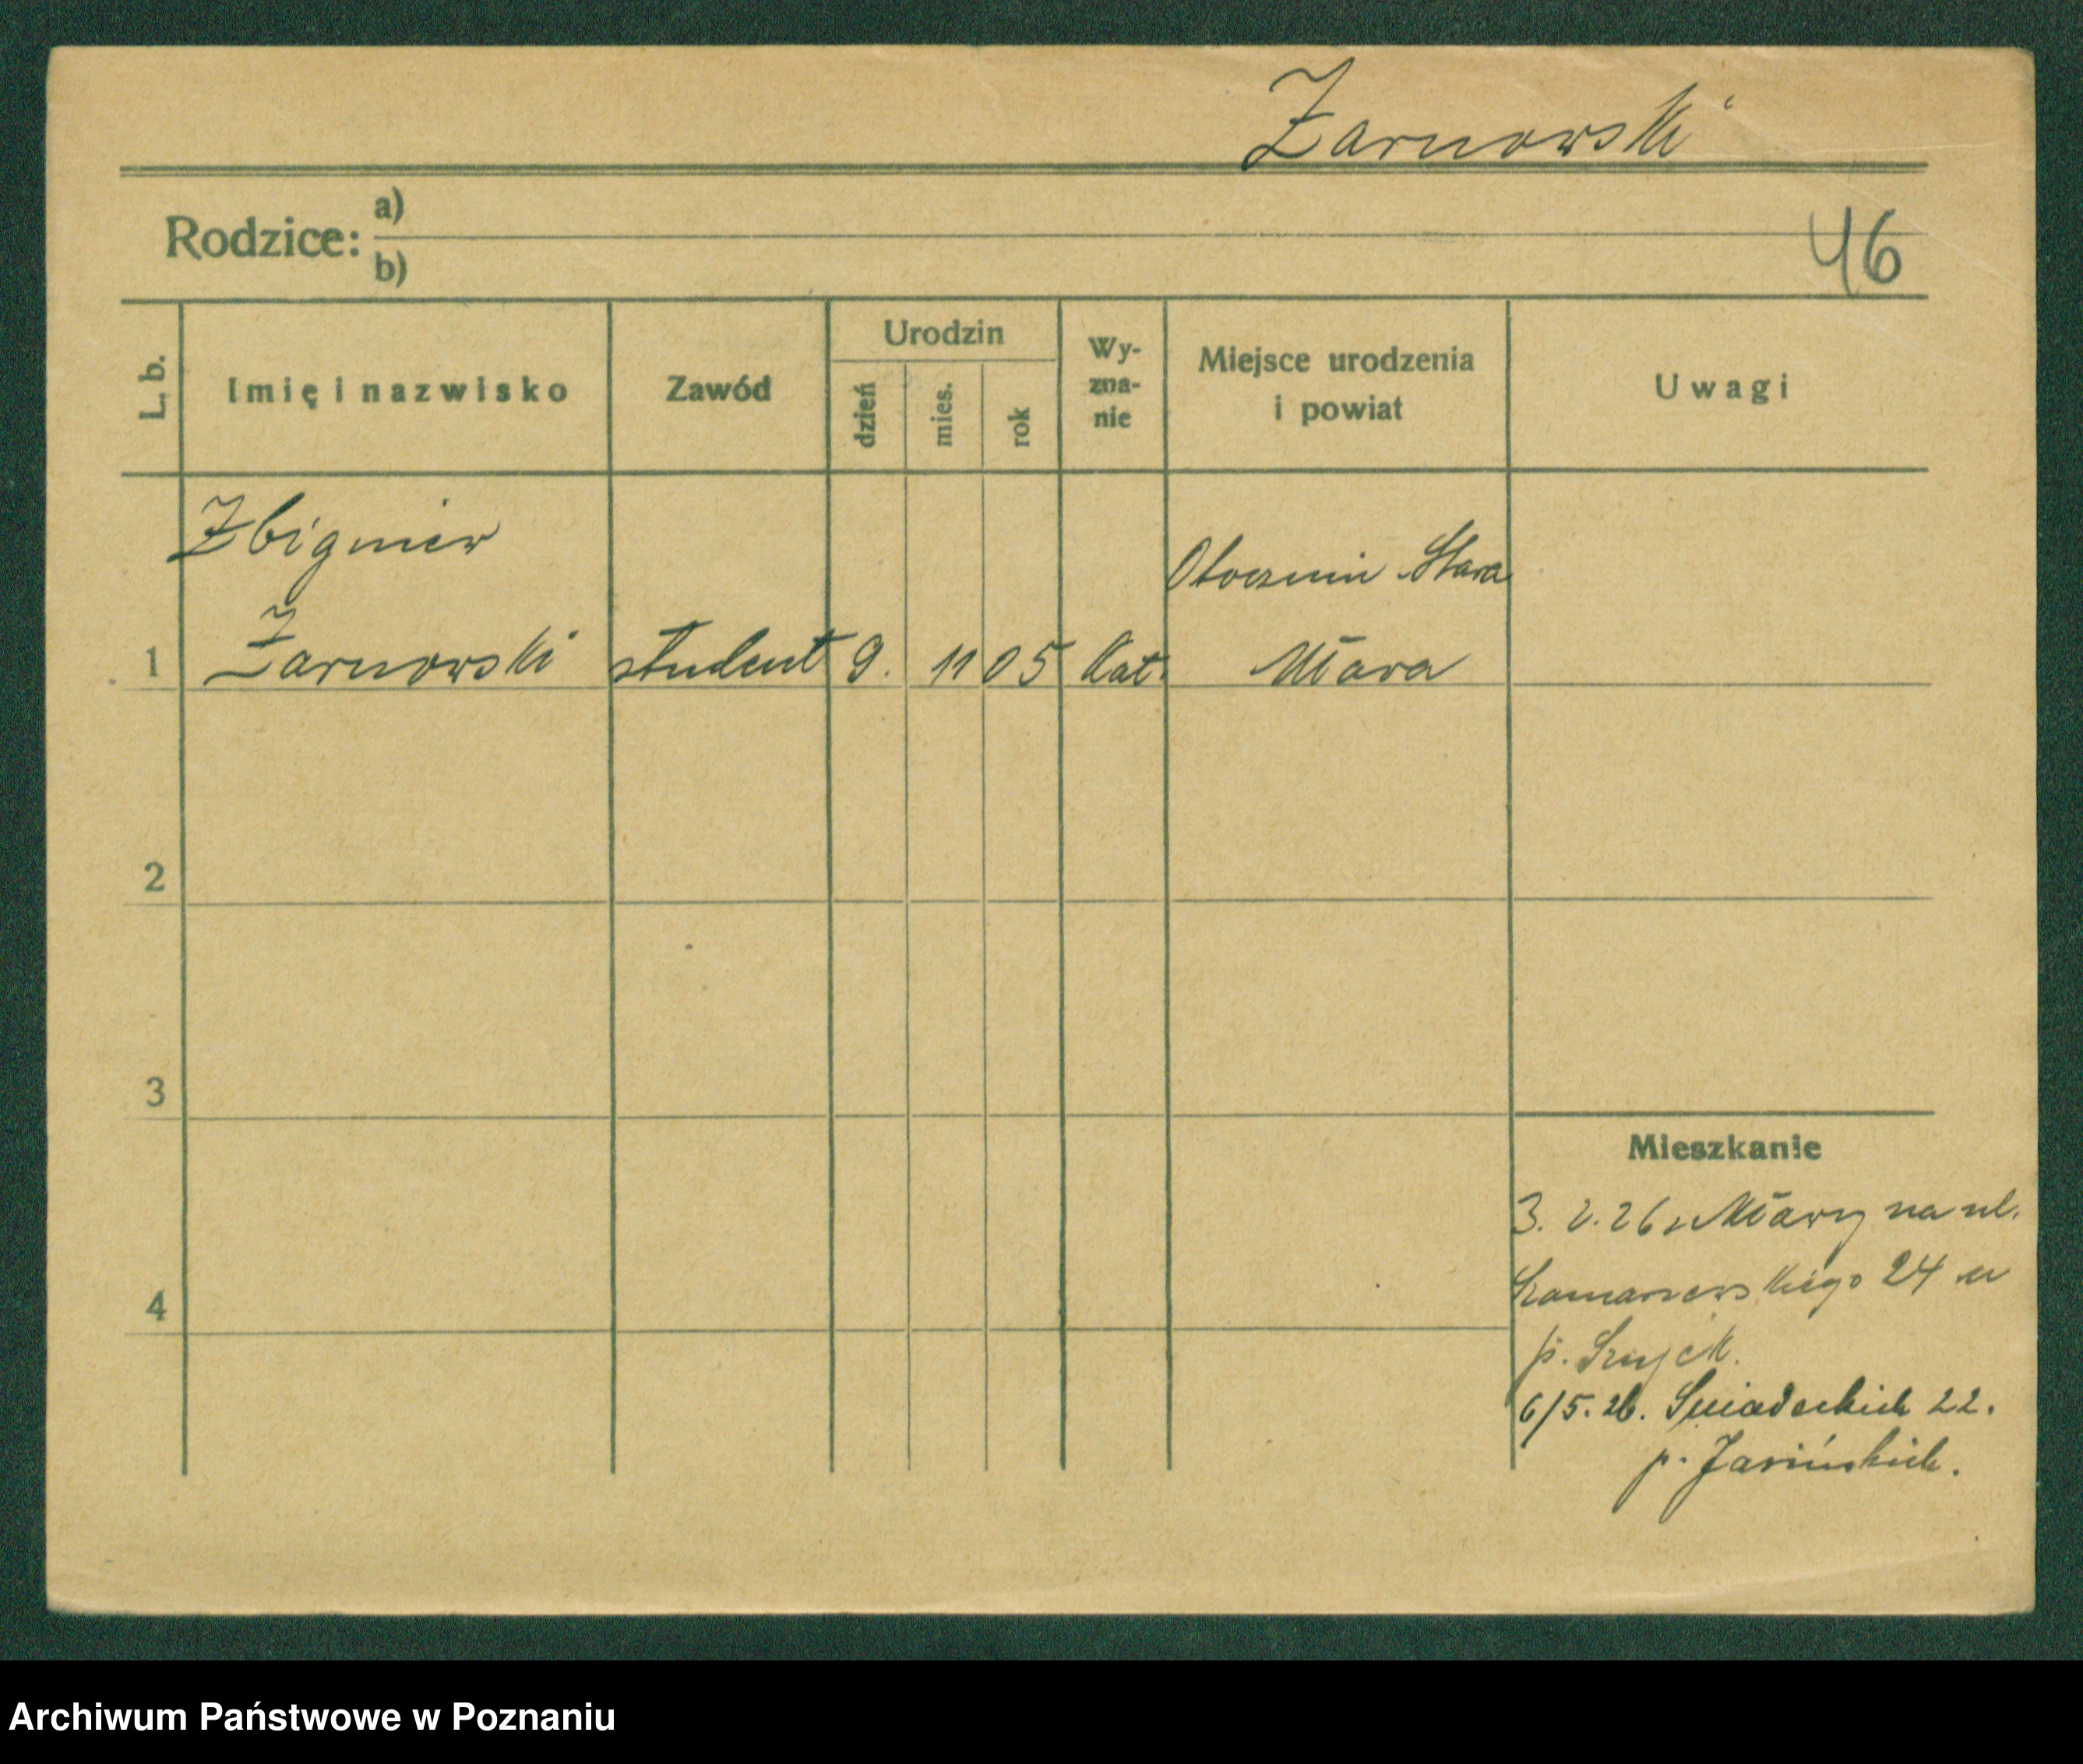 Żarnowski
Rodzice: a)
b)
46
L. b.
Imię i nazwisko
Zawód
Urodzin
dzień
mies.
rok
Wy-
zna-
nie
Miejsce urodzenia
i powiat
Uwagi
Zbigniew
Otocznia Stara
1 Żarnowski student 9. 11 05 kat. Mława
2
3
Mieszkanie
3. 2. 26 z Mławy na ul.
Szamarzewskiego 24 u
4
p.
6/5. 26. Śniadeckich 22.
p. Jasińskich.
Archiwum Państwowe w Poznaniu